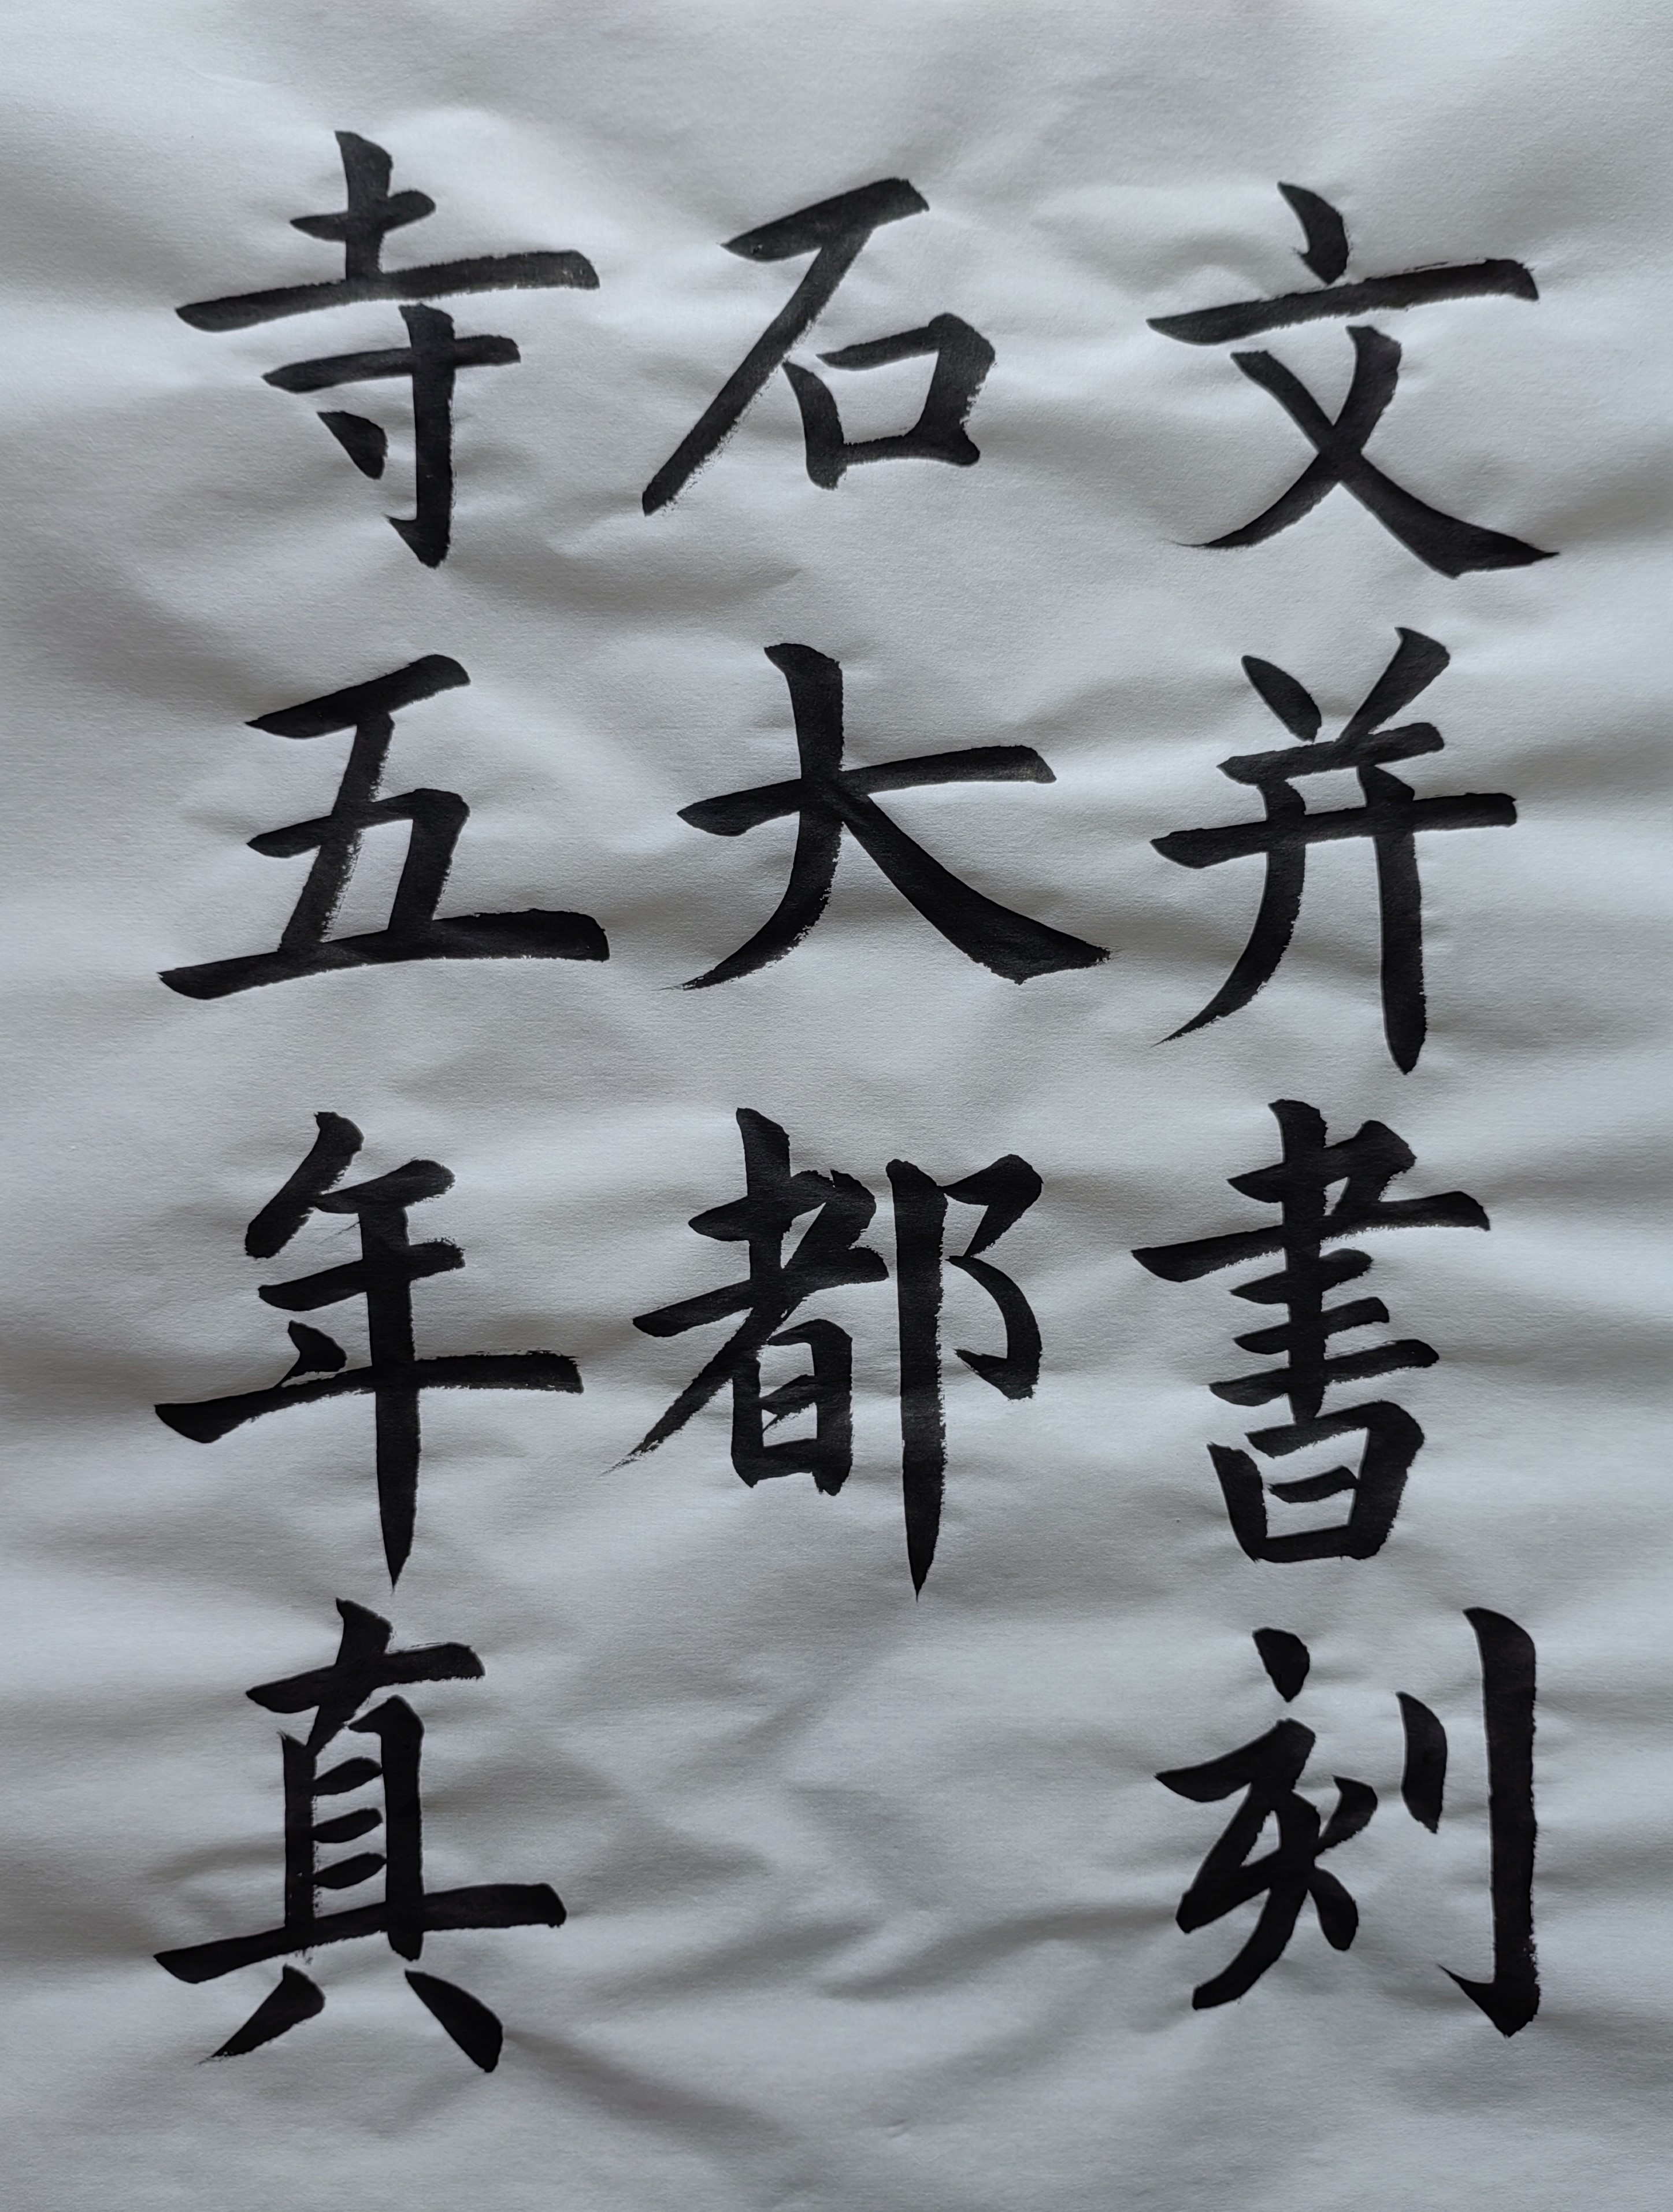 文并書刻
石大都
寺五年真